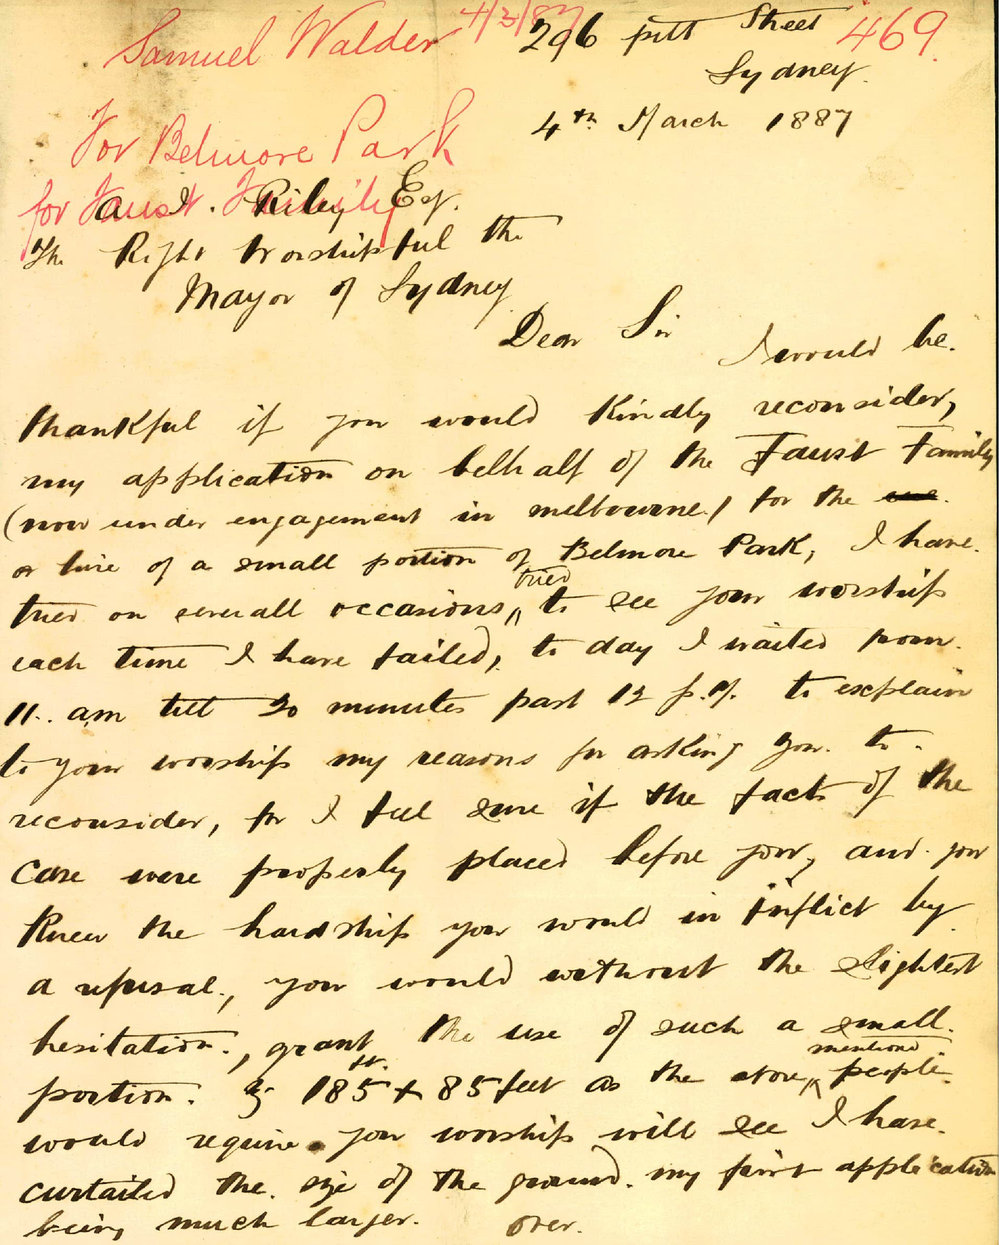 Samuel Walder 4/3/87
469
296 pitt Street
Sydney.
4th March 1887
For Belmore Park
for Faust Family
A. I. Riley Esq.
The Right Worshipful the
Mayor of Sydney
Dear Sir
I would be.
thankful if you would Kindly reconsider,
my application on belhalf of the Faust Family
(now under engagement in melbourne) for the use.
or hire of a small portion of Belmore Park, I have.
tried on serverall occasions, tried to see your worship
each time I have failed, to day I waited from.
11. am till 20 minutes past 12 p.m. to explain
to your worship my reasons for asking you. to.
reconsider, for I feel sure if the facts of the
case were properly placed before you, and you
Knew the hardship you would in inflict by
a refusal., you would without the slightest
hesitation., grant the use of such a small.
portion. 185 ft. x 85 feet as the above mentioned people.
would require you worship will see I have.
curtailed the. size of the ground. my first application
being much larger. over.